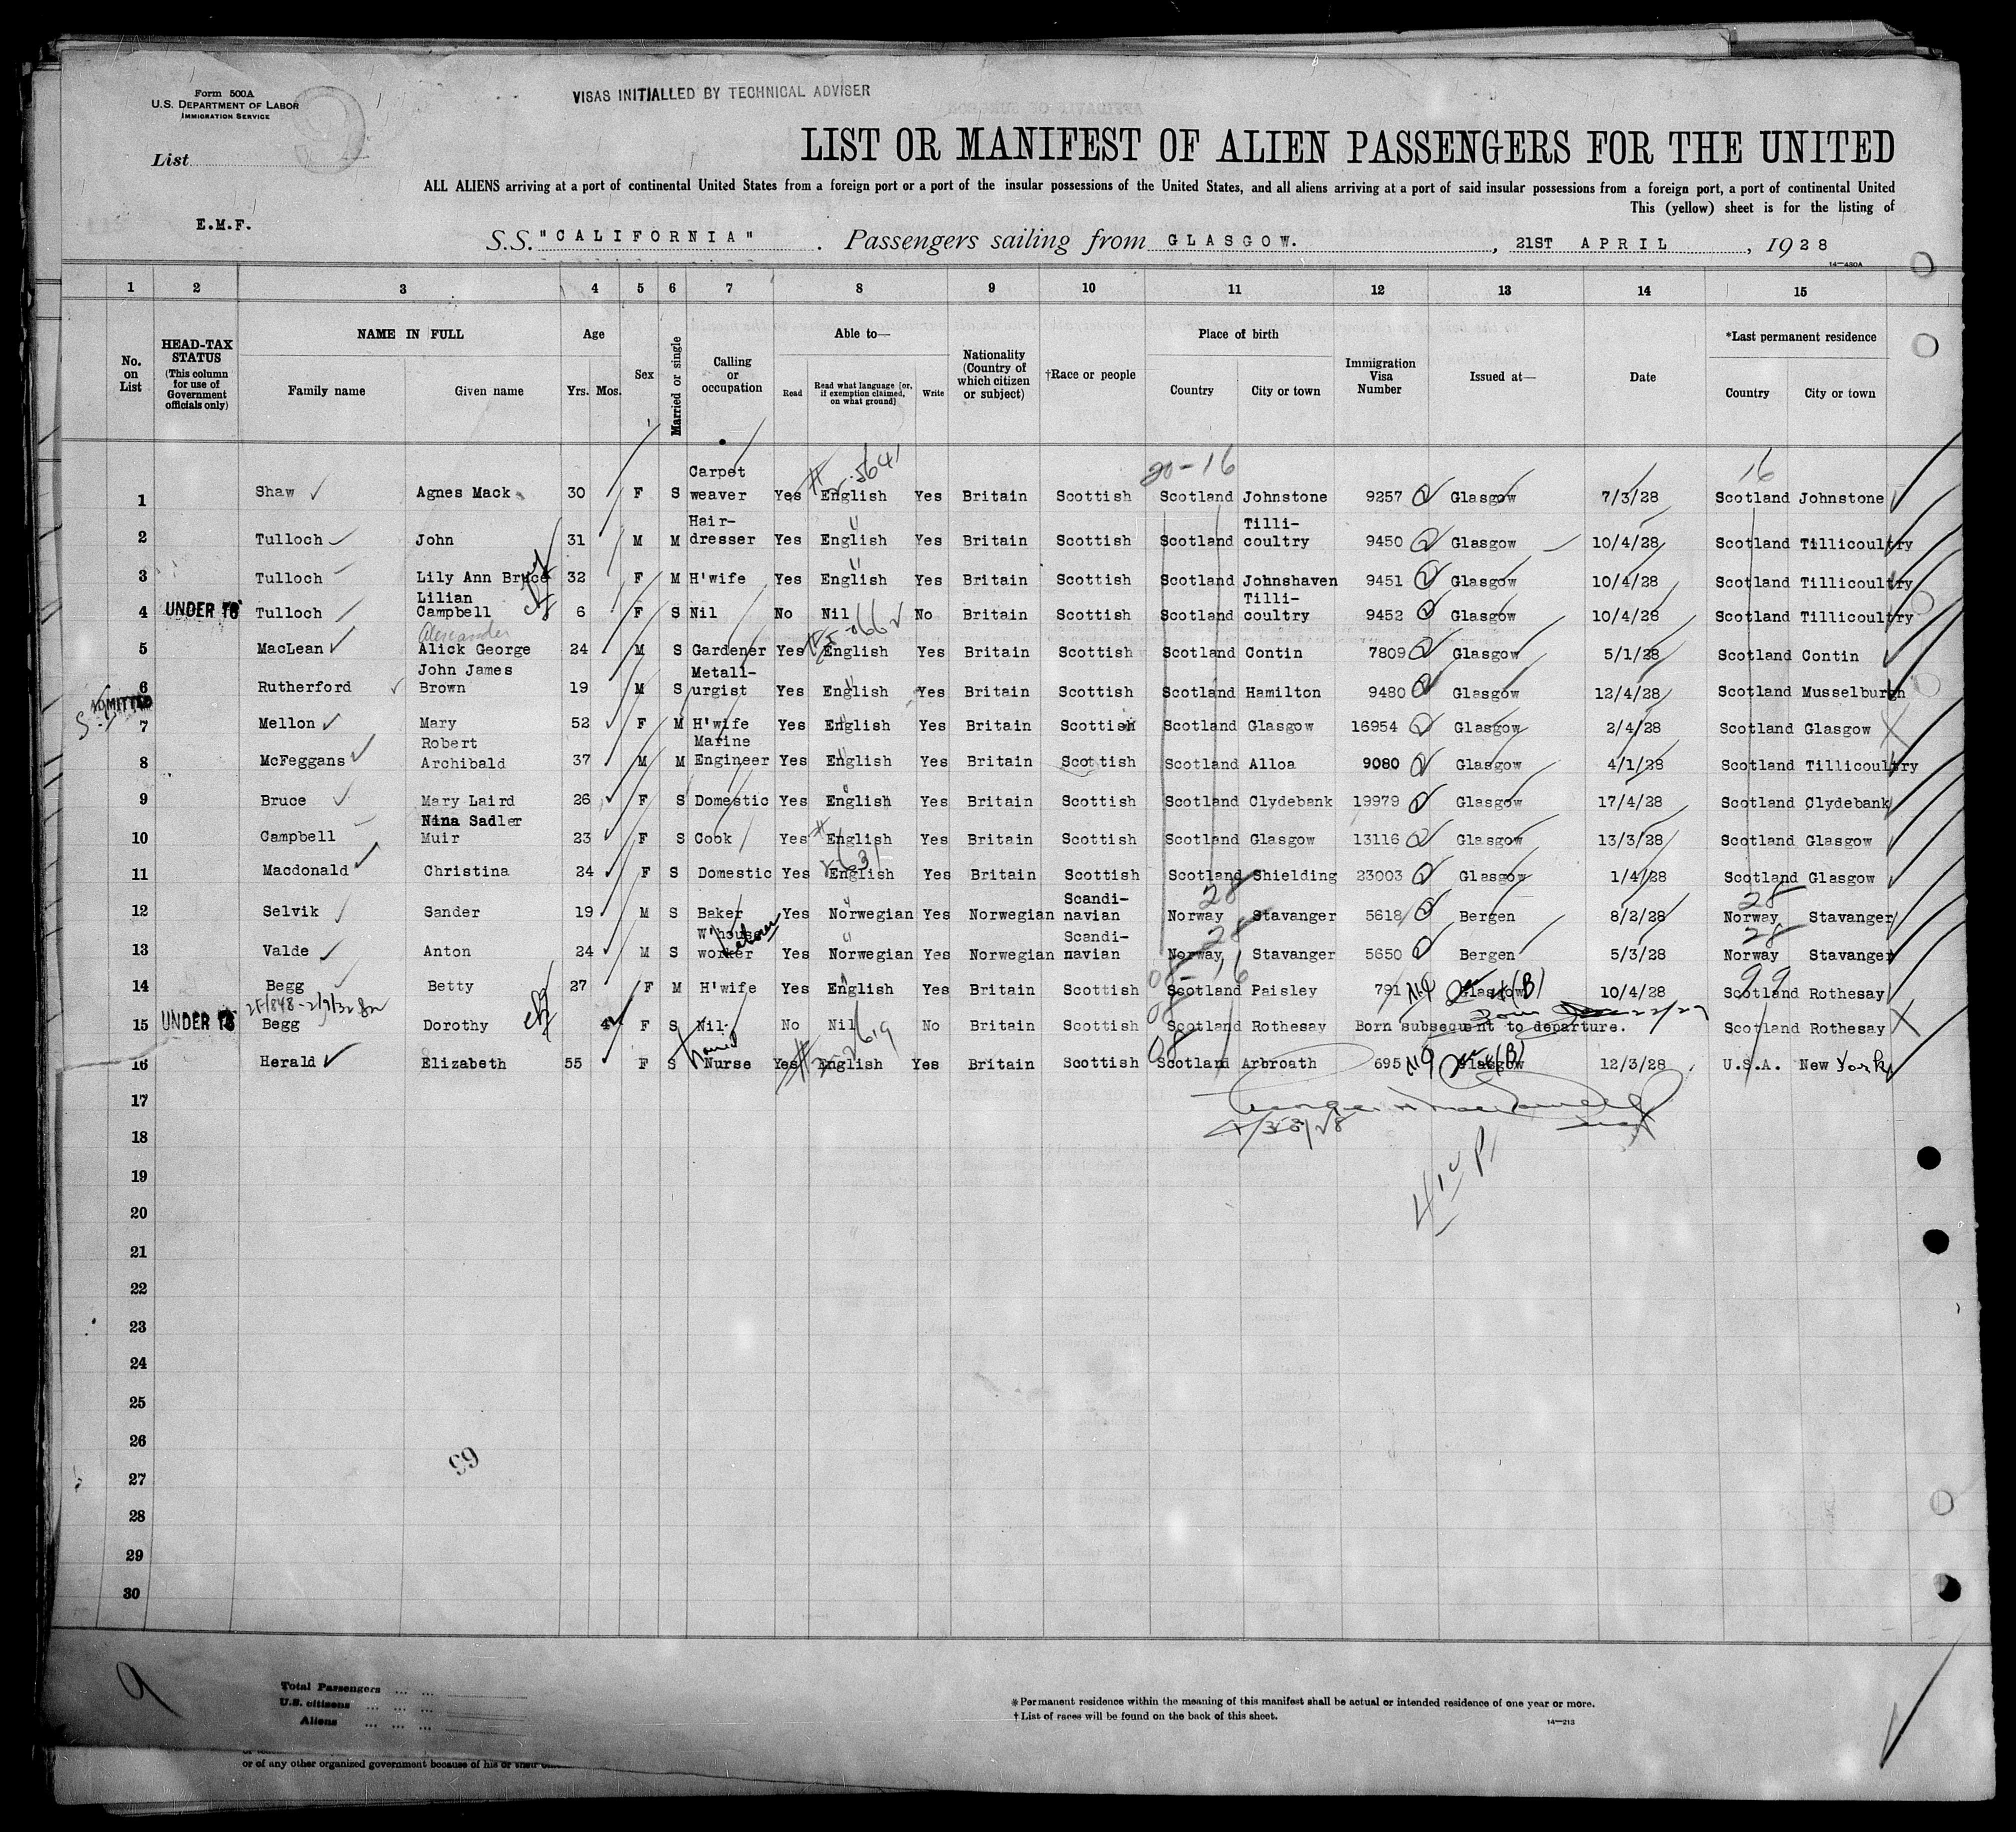 Form 500A
U.S. DEPARTMENT OF LABOR
IMMIGRATION SERVICE
VISAS INITIALLED BY TECHNICAL ADVISER
9
List
LIST OR MANIFEST OF ALIEN PASSENGERS FOR THE UNITED
ALL ALIENS arriving at a port of continental United States from a foreign port or a port of the insular possessions of the United States, and all aliens arriving at a port of said insular possessions from a foreign port, a port of continental United
This (yellow) sheet is for the listing of
E.M.F.
S.S. "CALIFORNIA" . Passengers sailing from GLASGOW. , 21ST APRIL , 1928
14—430A
1 2 3 4 5 6 7 8 9 10 11 12 13 14 15
No. on List
HEAD-TAX STATUS (This column for use of Government officials only)
NAME IN FULL
Family name Given name
Age
Yrs. Mos.
Sex
Married or single
Calling or occupation
Able to—
Read Read what language [or, if exemption claimed, on what ground] Write
Nationality (Country of which citizen or subject)
†Race or people
Place of birth
Country City or town
Immigration Visa Number
Issued at—
Date
*Last permanent residence
Country City or town
20-16 16
1 Shaw Agnes Mack 30 F S Carpet weaver Yes English Yes Britain Scottish Scotland Johnstone 9257 Glasgow 7/3/28 Scotland Johnstone
2 Tulloch John 31 M M Hair-dresser Yes English Yes Britain Scottish Scotland Tilli-coultry 9450 Glasgow 10/4/28 Scotland Tillicoultry
3 Tulloch Lily Ann Bruce 32 F M H'wife Yes English Yes Britain Scottish Scotland Johnshaven 9451 Glasgow 10/4/28 Scotland Tillicoultry
4 UNDER 16 Tulloch Lilian Campbell 6 F S Nil No Nil No Britain Scottish Scotland Tilli-coultry 9452 Glasgow 10/4/28 Scotland Tillicoultry
Alexander
5 MacLean Alick George 24 M S Gardener Yes English Yes Britain Scottish Scotland Contin 7809 Glasgow 5/1/28 Scotland Contin
6 Rutherford John James Brown 19 M S Metall-urgist Yes English Yes Britain Scottish Scotland Hamilton 9480 Glasgow 12/4/28 Scotland Musselburgh
ADMITTED
7 Mellon Mary 52 F M H'wife Yes English Yes Britain Scottish Scotland Glasgow 16954 Glasgow 2/4/28 Scotland Glasgow
8 McFeggans Robert Archibald 37 M M Marine Engineer Yes English Yes Britain Scottish Scotland Alloa 9080 Glasgow 4/1/28 Scotland Tillicoultry
9 Bruce Mary Laird 26 F S Domestic Yes English Yes Britain Scottish Scotland Clydebank 19979 Glasgow 17/4/28 Scotland Clydebank
10 Campbell Nina Sadler Muir 23 F S Cook Yes English Yes Britain Scottish Scotland Glasgow 13116 Glasgow 13/3/28 Scotland Glasgow
11 Macdonald Christina 24 F S Domestic Yes English Yes Britain Scottish Scotland Shielding 23003 Glasgow 1/4/28 Scotland Glasgow
28 28
12 Selvik Sander 19 M S Baker Yes Norwegian Yes Norwegian Scandi-navian Norway Stavanger 5618 Bergen 8/2/28 Norway Stavanger
28 28
13 Valde Anton 24 M S W'house worker Yes Norwegian Yes Norwegian Scandi-navian Norway Stavanger 5650 Bergen 5/3/28 Norway Stavanger
08-16 99
14 Begg Betty 27 F M H'wife Yes English Yes Britain Scottish Scotland Paisley 791 Glasgow 10/4/28 Scotland Rothesay
15 UNDER 16 Begg Dorothy 4 F S Nil No Nil No Britain Scottish Scotland Rothesay Born subsequent to departure. Scotland Rothesay
16 Herald Elizabeth 55 F S Nurse Yes English Yes Britain Scottish Scotland Arbroath 695 Glasgow 12/3/28 U.S.A. New York
17
18
19
20
21
22
23
24
25
26
27
28
29
30
9
Total Passengers ... ...
U.S. citizens ... ... ...
Aliens ... ... ...
*Permanent residence within the meaning of this manifest shall be actual or intended residence of one year or more.
†List of races will be found on the back of this sheet.
14—213
or of any other organized government because of his or their